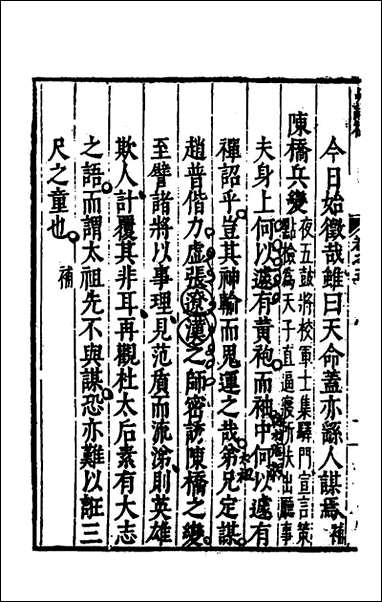 今日始徵哉雖曰天命蓋亦繇人謀焉補
陳橋兵變夜五鼓將校軍士集驛門宣言策
點檢為天子直逼寢所扶出聽事
夫身上何以遽有黃袍而袖中何以遽有
禪詔乎豈其神輸而鬼運之哉弟兄定謀
趙普偕力虛張遼漢之師密誘陳橋之變
至譬諸將以事理見范質而流涕則英雄
欺人計覆其非耳再觀杜太后素有大志
之語而謂太祖先不與謀恐亦難以誑三
尺之童也補